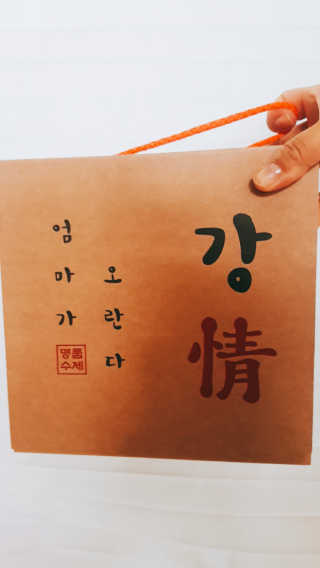 강情
엄마가
오란다
명품
수제